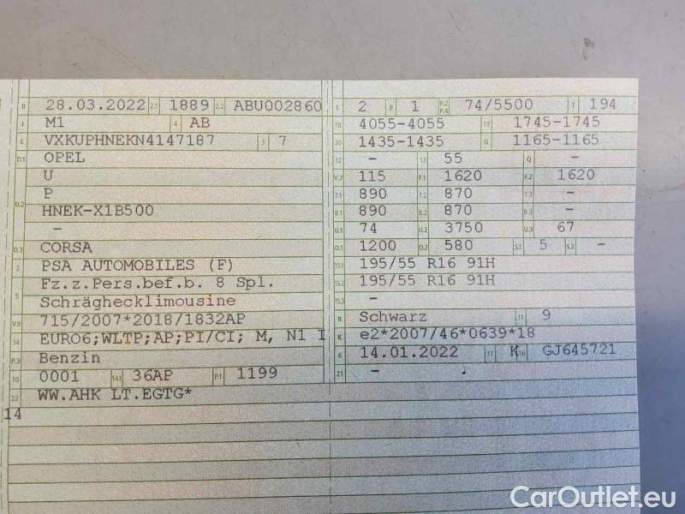 28.03.2022 1889 ABU002860
M1 AB
VXKUPHNEKN4147187 7
OPEL
U
P
HNEK-X1B500
-
CORSA
PSA AUTOMOBILES (F)
Fz.z.Pers.bef.b. 8 Spl.
Schräghecklimousine
715/2007*2018/1832AP
EURO6;WLTP;AP;PI/CI; M, N1 I
Benzin
0001 36AP 1199
WW.AHK LT.EGTG*
14
2 1 74/5500 194
4055-4055 1745-1745
1435-1435 1165-1165
- 55 -
115 1620 1620
890 870 -
890 870 -
74 3750 67
1200 580 5 -
195/55 R16 91H
195/55 R16 91H
-
Schwarz 9
e2*2007/46*0639*18
14.01.2022 K GJ645721
-
CarOutlet.eu